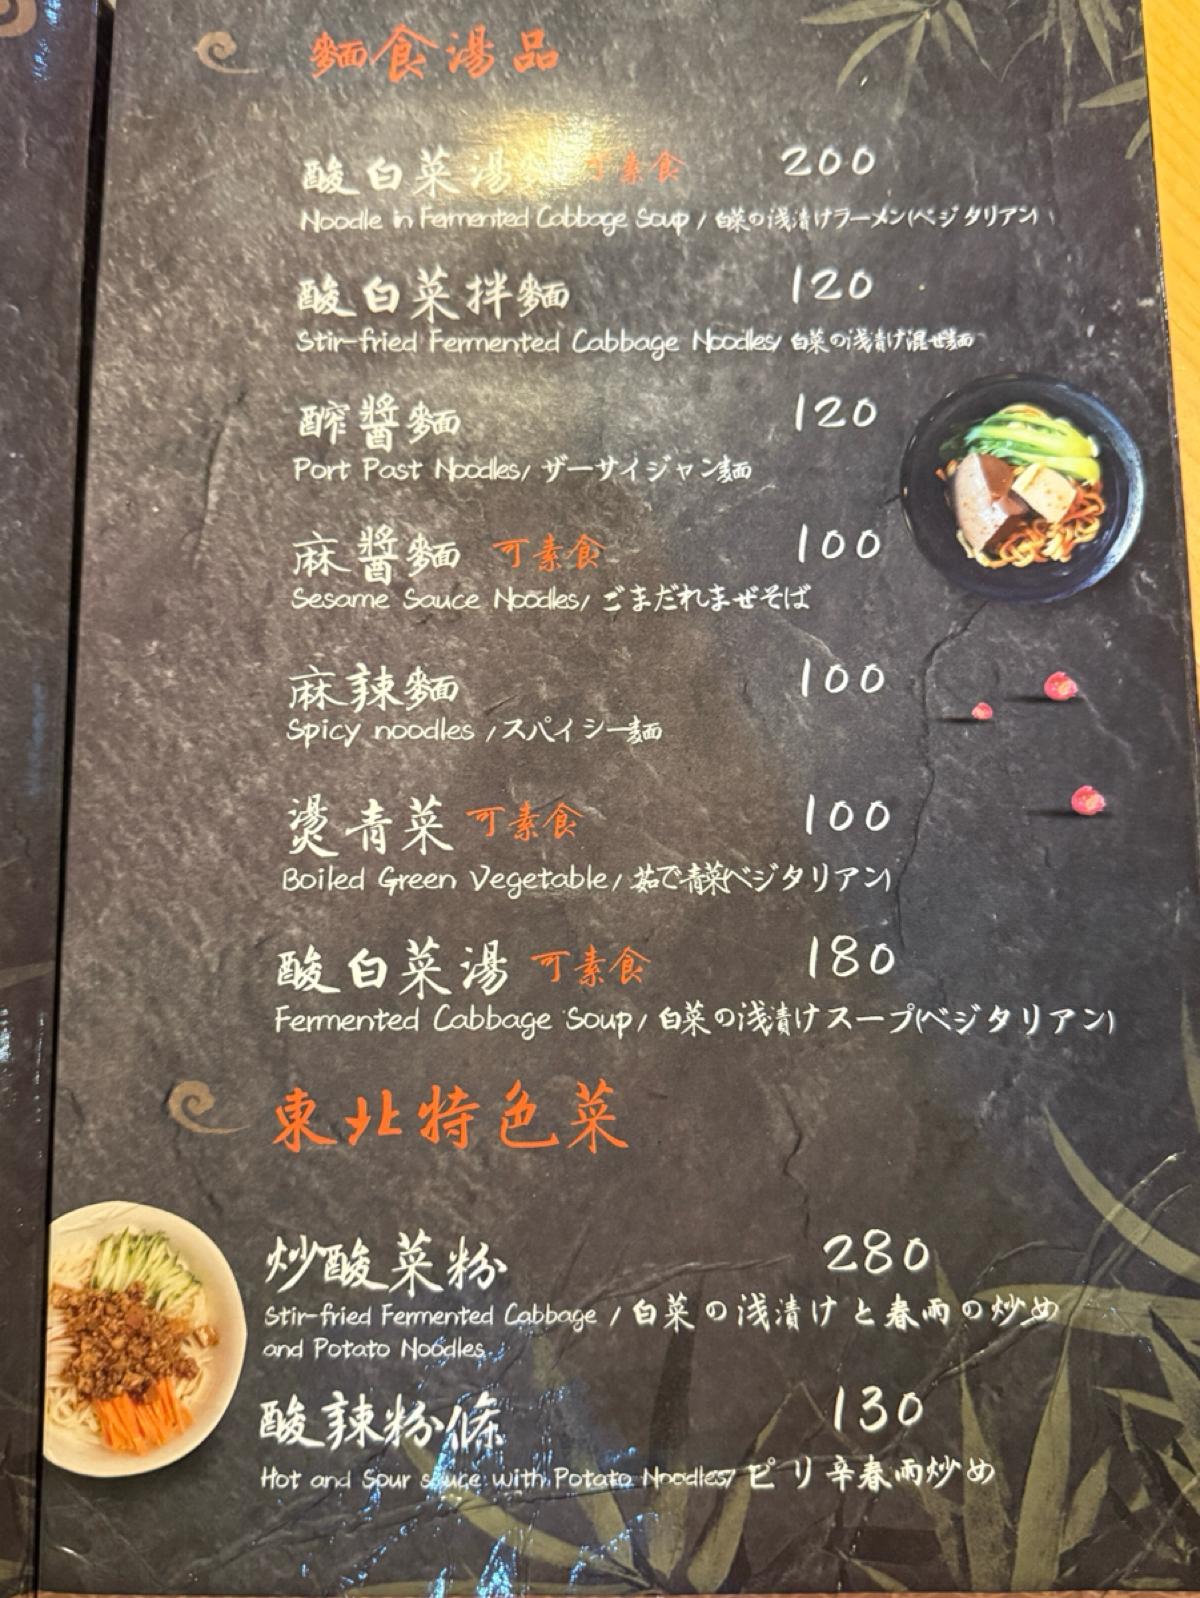 麵食湯品
酸白菜湯 可素食 200
Noodle in Fermented Cabbage Soup / 白菜の浅漬けラーメン(ベジタリアン)
酸白菜拌麵 120
Stir-fried Fermented Cabbage Noodles/ 白菜の浅漬け混ぜ麺
醡醬麵 120
Port Past Noodles/ ザーサイジャン麺
麻醬麵 可素食 100
Sesame Sauce Noodles/ ごまだれまぜそば
麻辣麵 100
Spicy noodles /スパイシー麺
燙青菜 可素食 100
Boiled Green Vegetable/ 茹で青菜(ベジタリアン)
酸白菜湯 可素食 180
Fermented Cabbage Soup/ 白菜の浅漬けスープ(ベジタリアン)
東北特色菜
炒酸菜粉 280
Stir-fried Fermented Cabbage / 白菜の浅漬けと春雨の炒め
and Potato Noodles
酸辣粉條 130
Hot and Sour sauce with Potato Noodles/ ピリ辛春雨炒め